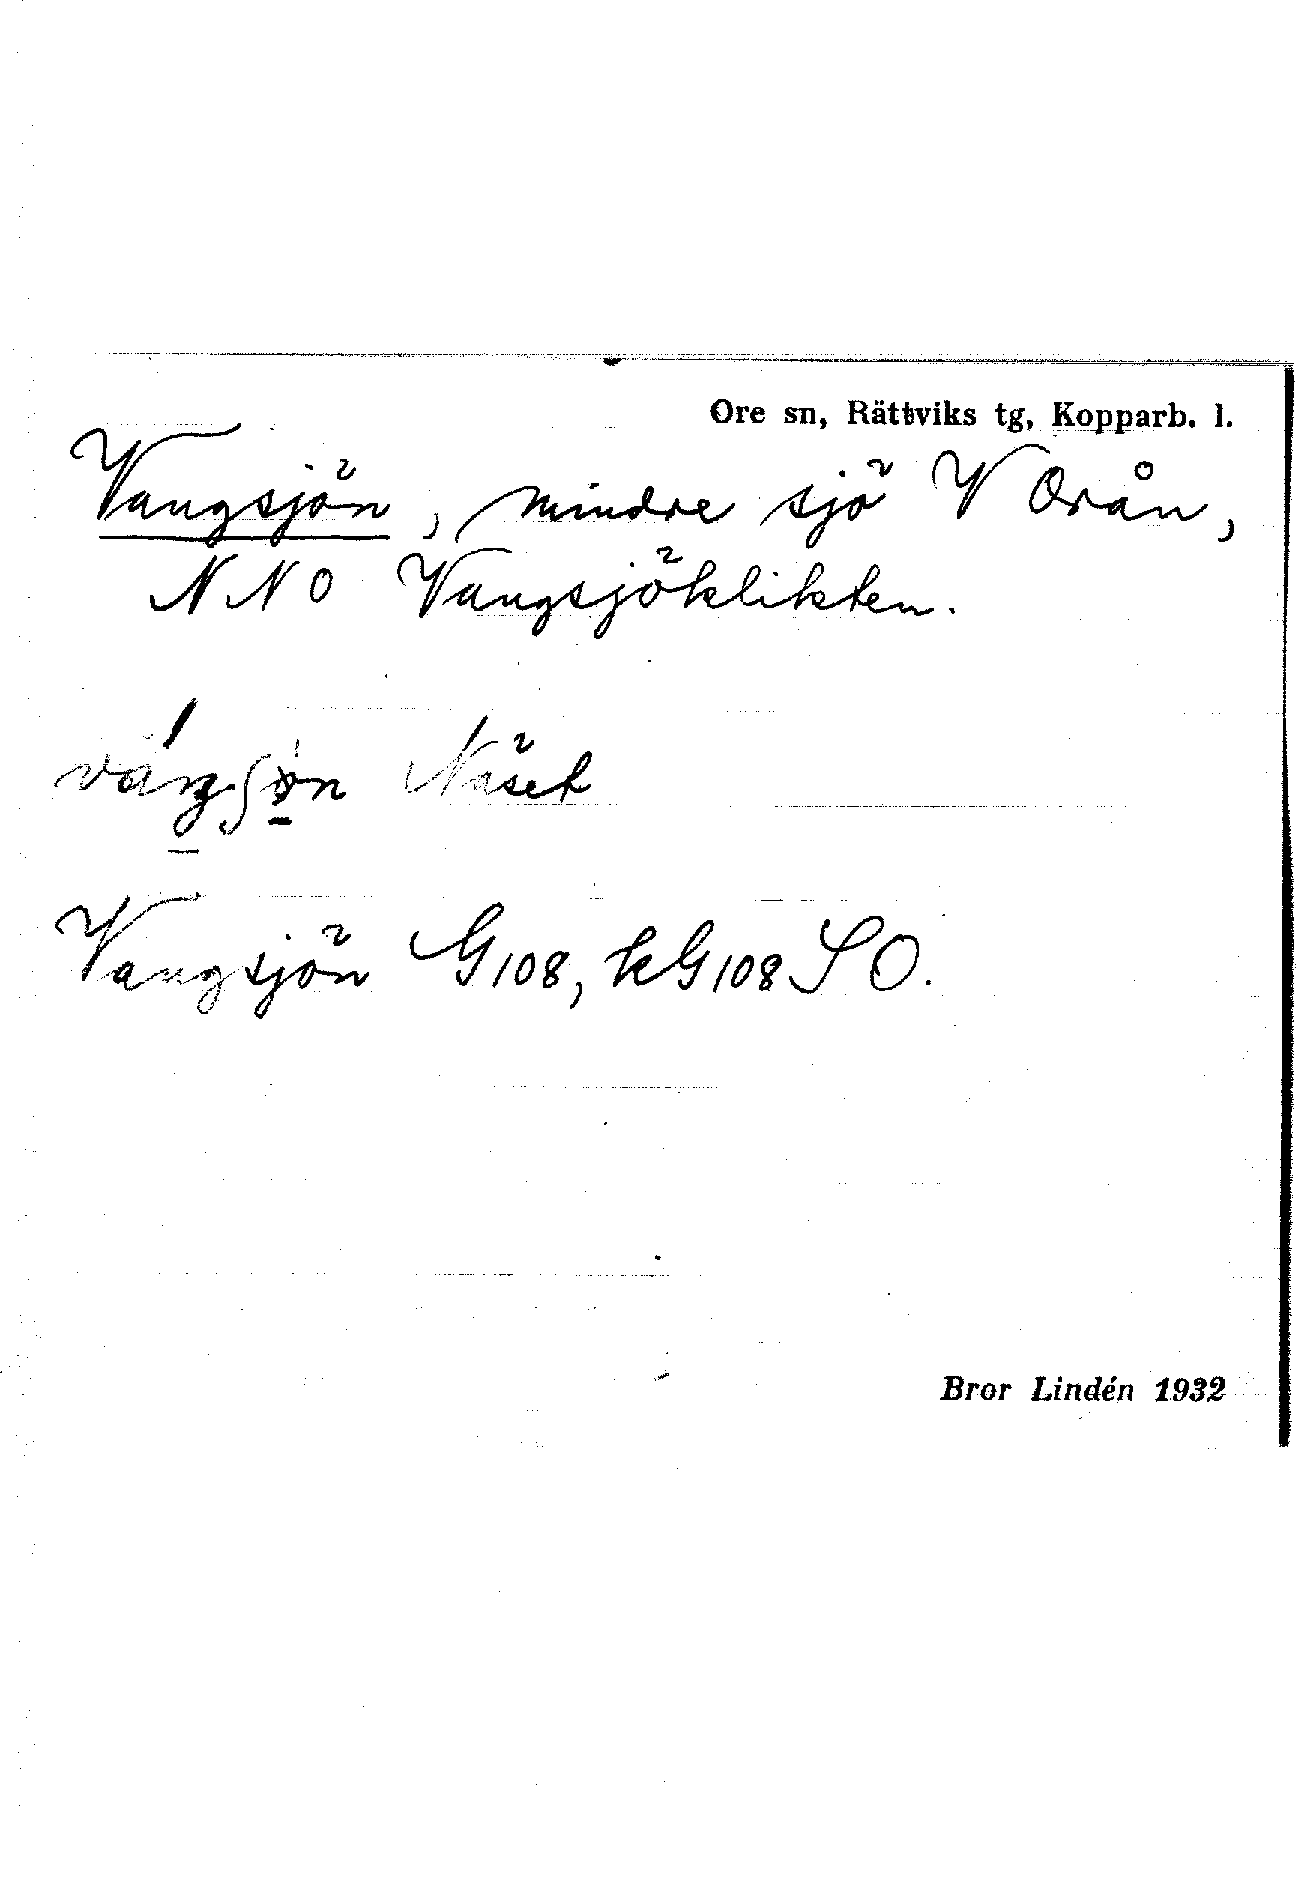 Ore sn, Rättviks tg, Kopparb. l.
Vangsjön, mindre sjö V Orån,
NNO Vangsjöklikten.
Näset
Vangsjön G108, kG108 SO.
Bror Lindén 1932